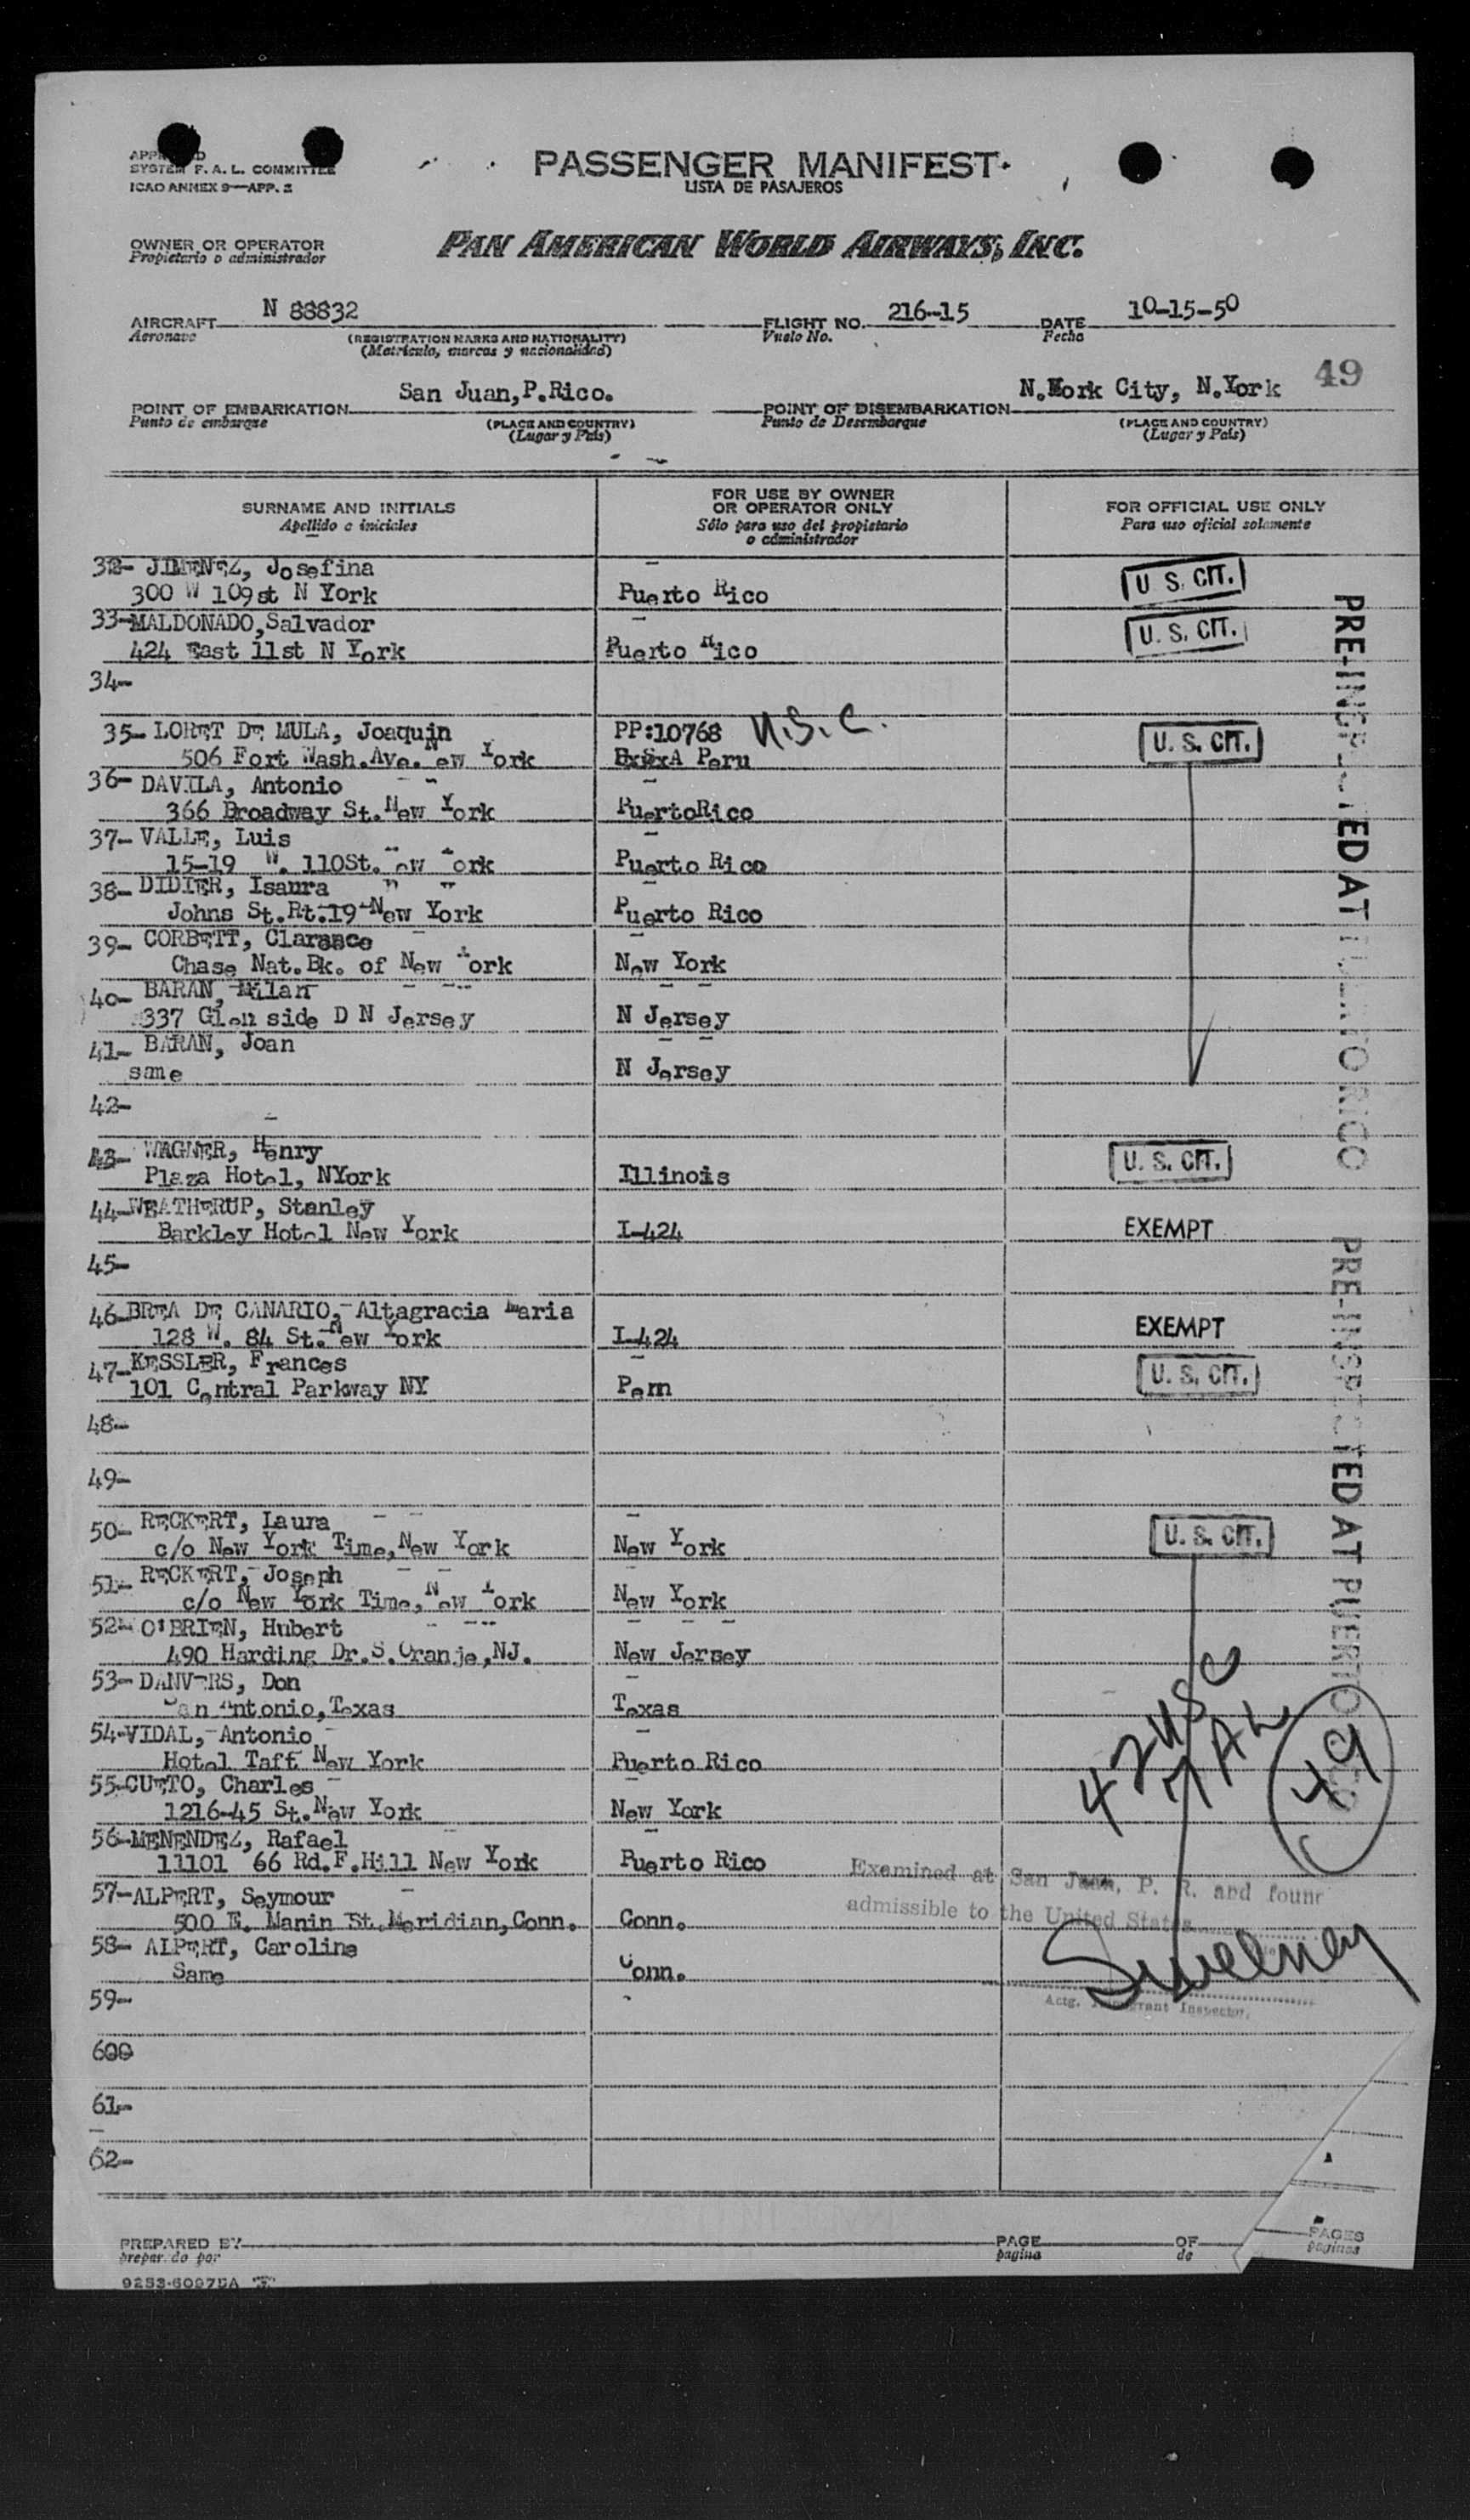 APPROVED
SYSTEM F. A. L. COMMITTEE
ICAO ANNEX 9—APP. 2
PASSENGER MANIFEST
LISTA DE PASAJEROS
OWNER OR OPERATOR
Propietario o administrador
PAN AMERICAN WORLD AIRWAYS, INC.
AIRCRAFT N 88832 FLIGHT NO. 216-15 DATE 10-15-50
Aeronave (REGISTRATION MARKS AND NATIONALITY) Vuelo No. Fecha
(Matrícula, marcas y nacionalidad)
49
POINT OF EMBARKATION San Juan,P.Rico. POINT OF DISEMBARKATION N.York City, N.York
Punto de embarque (PLACE AND COUNTRY) Punto de Desembarque (PLACE AND COUNTRY)
(Lugar y País) (Lugar y País)
SURNAME AND INITIALS FOR USE BY OWNER OR OPERATOR ONLY FOR OFFICIAL USE ONLY
Apellido e iniciales Sólo para uso del propietario o administrador Para uso oficial solamente
32- JIMENEZ, Josefina U S. CIT.
300 W 109st N York Puerto Rico
33-MALDONADO,Salvador U. S. CIT.
424 East 11st N York Puerto Rico
34-
35- LORET DE MULA, Joaquin PP:10768 U.S.C. U. S. CIT.
506 Fort Wash.Ave. New York Peru
36- DAVILA, Antonio
366 Broadway St.New York PuertoRico
37- VALLE, Luis
15-19 W. 110St. New York Puerto Rico
38- DIDIER, Isaura
Johns St.Rt.19 New York Puerto Rico
39- CORBETT, Clarence
Chase Nat.Bk. of New York New York
40- BARAN, Milan
337 Glen side D N Jersey N Jersey
41- BARAN, Joan
same N Jersey
42-
43- WAGNER, Henry U. S. CIT.
Plaza Hotel, NYork Illinois
44-WEATHERUP, Stanley
Barkley Hotel New York I-424 EXEMPT
45-
46-BREA DE CANARIO, Altagracia Maria
128 W. 84 St.New York I-424 EXEMPT
47-KESSLER, Frances U. S. CIT.
101 Central Parkway NY Pern
48-
49-
50- RECKERT, Laura U. S. CIT.
c/o New York Time,New York New York
51- RECKERT, Joseph
c/o New York Time,New York New York
52- O'BRIEN, Hubert
490 Harding Dr.S.Oranje,NJ. New Jersey
53- DANVERS, Don
San Antonio,Texas Texas
54-VIDAL, Antonio
Hotel Taft New York Puerto Rico
55-CUETO, Charles
1216-45 St.New York New York
56-MENENDEZ, Rafael
11101 66 Rd.F.Hill New York Puerto Rico
57-ALPERT, Seymour
500 E. Manin St.Meridian,Conn. Conn.
58- ALPERT, Caroline
Same Conn.
59-
600
61-
62-
PRE-INSPECTED AT PUERTO RICO
PRE-INSPECTED AT PUERTO RICO
42 USC
49
Examined at San Juan, P. R. and found
admissible to the United States
Sweeney
Actg. Immigrant Inspector.
PREPARED BY PAGE OF PAGES
preparado por pagina de paginas